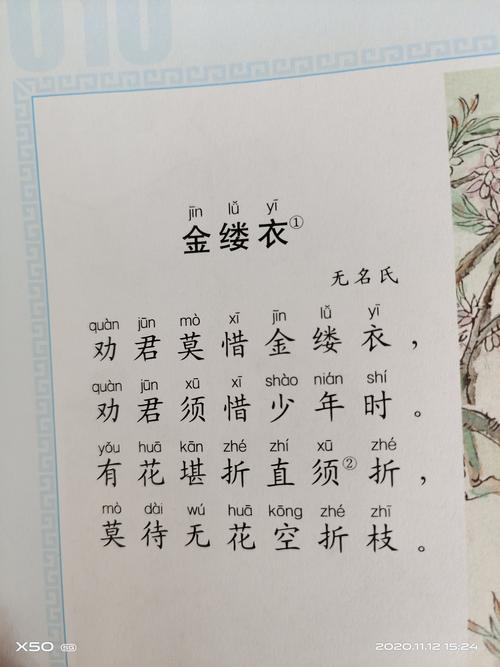 010
jīn lǚ yī
金缕衣①
无名氏
quàn jūn mò xī jīn lǚ yī
劝君莫惜金缕衣，
quàn jūn xū xī shào nián shí
劝君须惜少年时。
yǒu huā kān zhé zhí xū zhé
有花堪折直须②折，
mò dài wú huā kōng zhé zhī
莫待无花空折枝。
X50 5G
2020.11.12 15:24